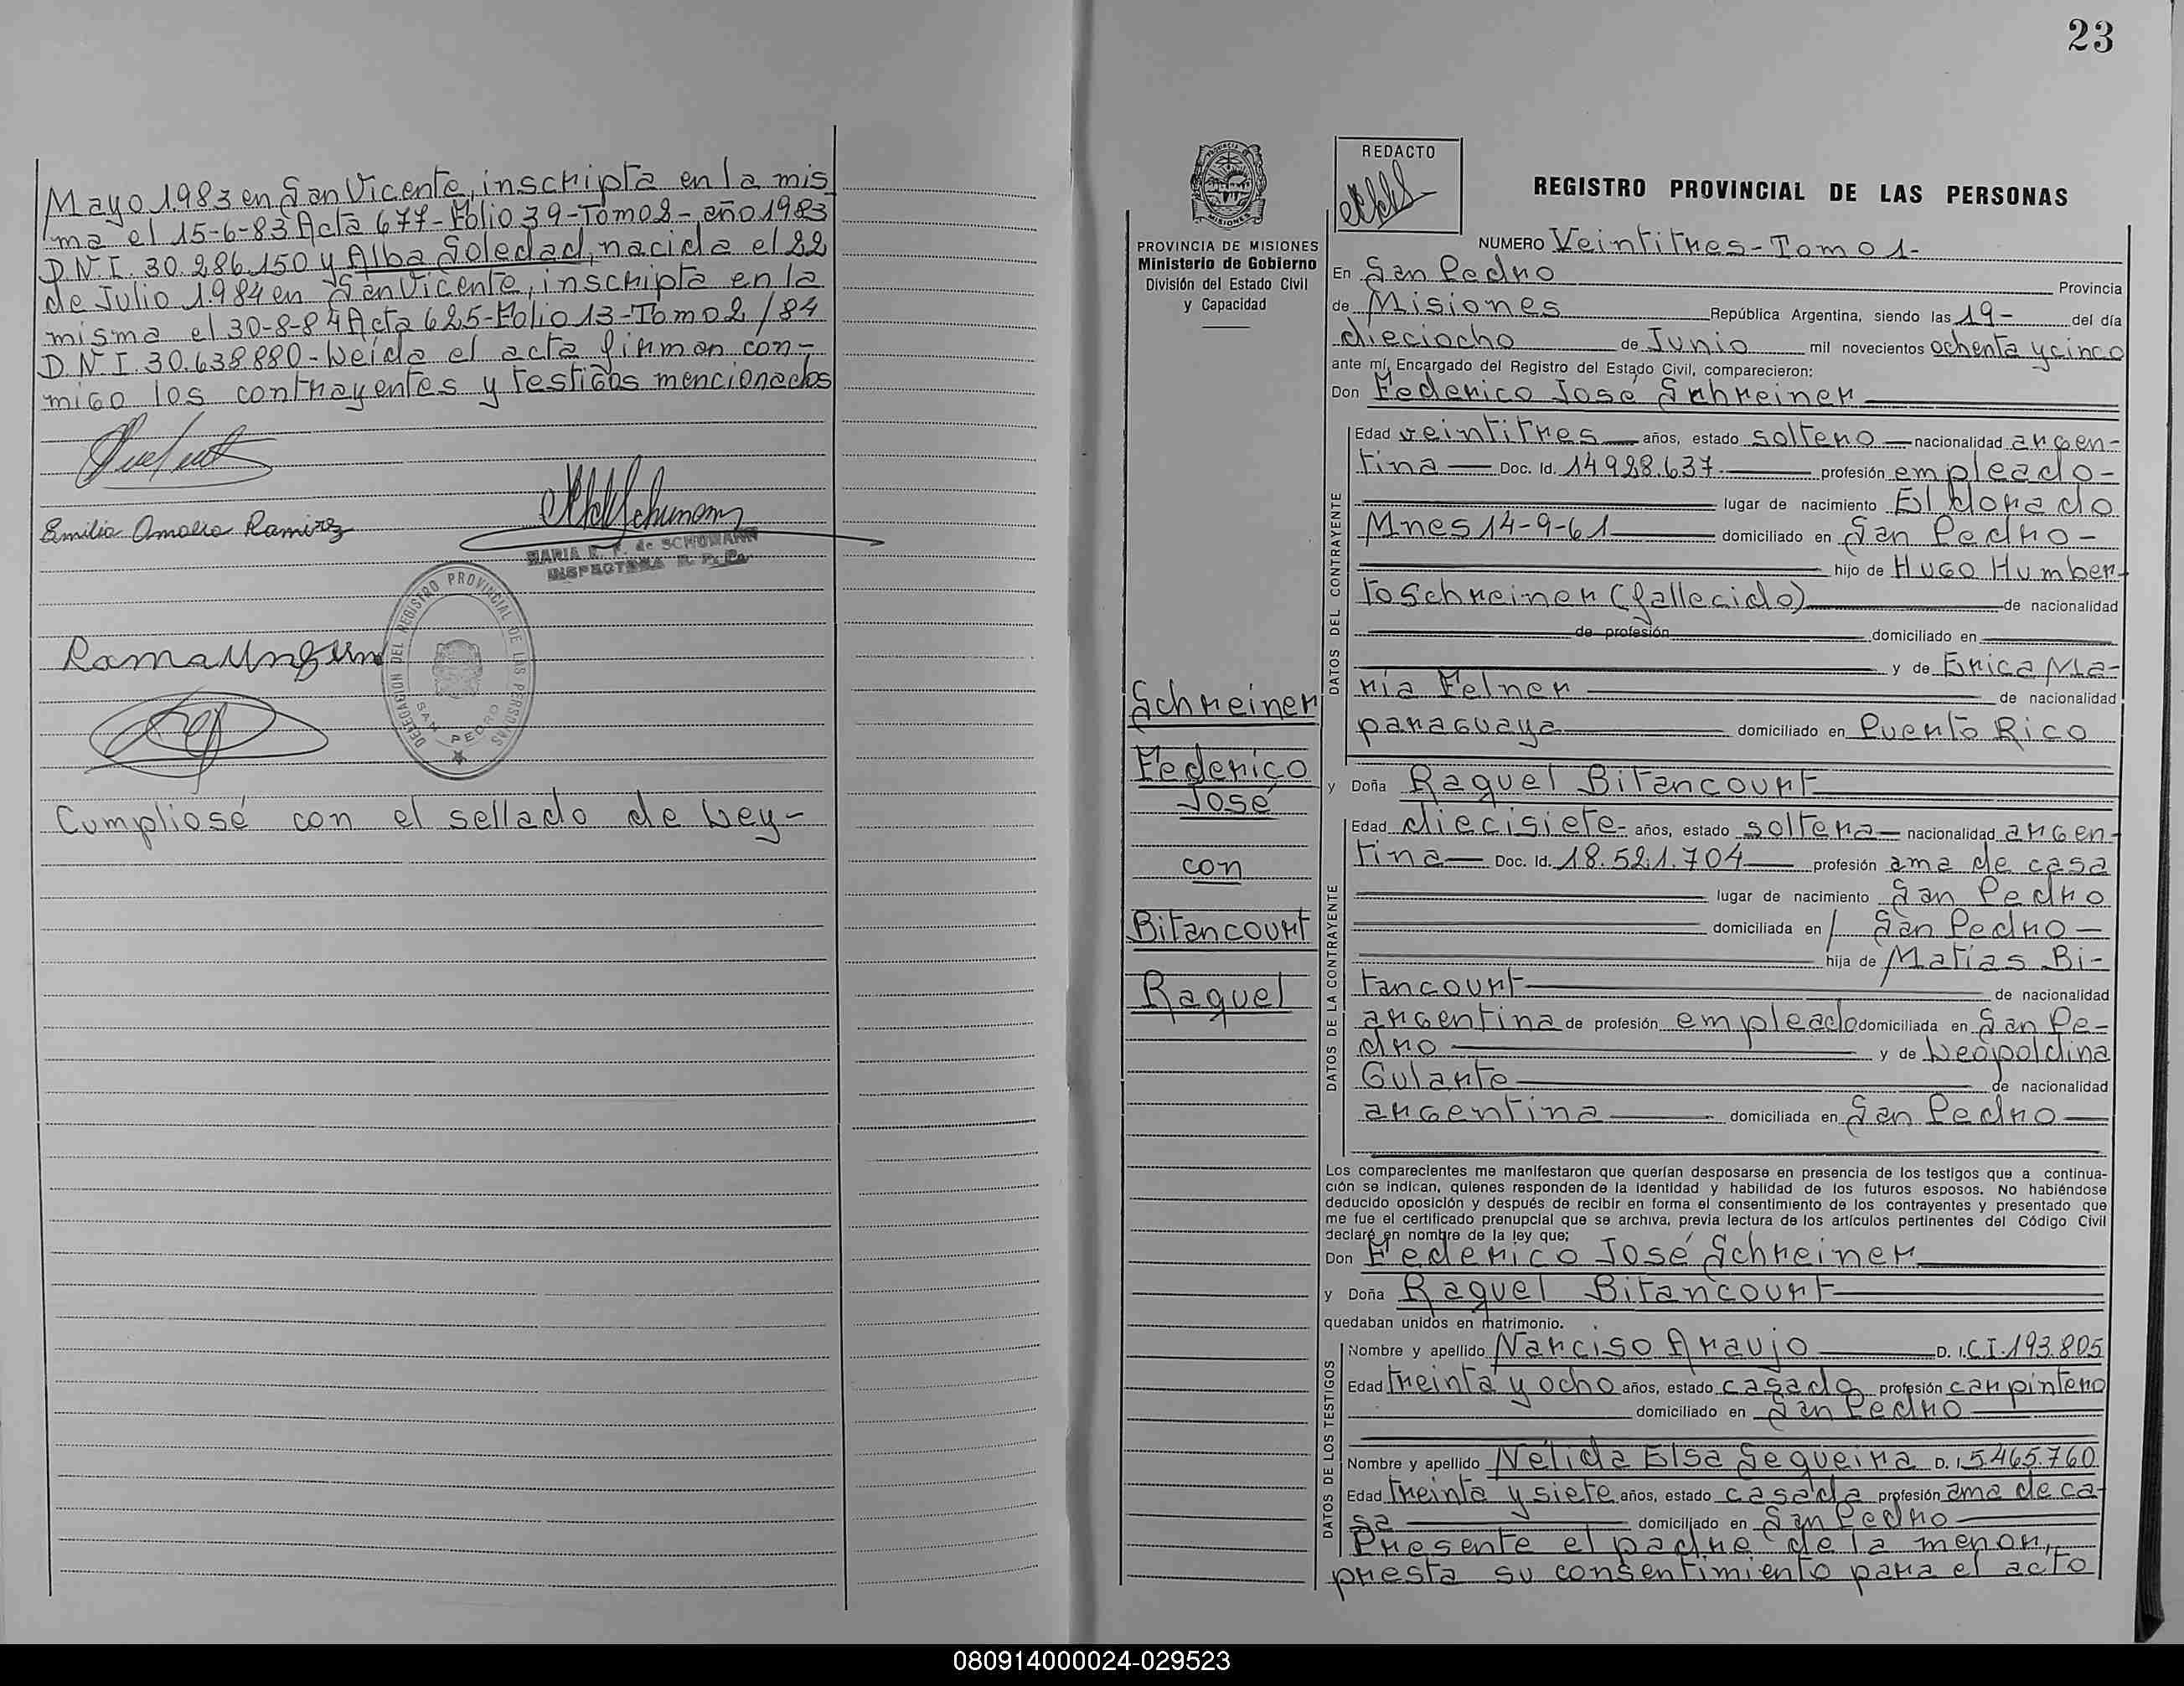 Mayo 1983 en San Vicente, inscripta en la mis
ma el 15-6-83 Acta 677-Folio 39-Tomo 2-año 1983
D.N.I. 30.286.150 y Alba Soledad, nacida el 22
de Julio 1984 en San Vicente, inscripta en la
misma el 30-8-84 Acta 625-Folio 13-Tomo 2/84
D.N.I. 30.638.880-Leída el acta firman con-
migo los contrayentes y testigos mencionados
Emilia Ramirez
MARIA de SCHUMANN
INSPECTORA
DELEGACION DEL REGISTRO PROVINCIAL DE LAS PERSONAS
SAN PEDRO
Cumpliosé con el sellado de Ley-
23
PROVINCIA DE MISIONES
Ministerio de Gobierno
División del Estado Civil
y Capacidad
Schreiner
Federico
José
con
Bitancourt
Raquel
REDACTO
REGISTRO PROVINCIAL DE LAS PERSONAS
NUMERO Veintitres-Tomo 1-
En San Pedro Provincia
de Misiones República Argentina, siendo las 19- del día
dieciocho de Junio mil novecientos ochenta y cinco
ante mí, Encargado del Registro del Estado Civil, comparecieron:
Don Federico José Schreiner
DATOS DEL CONTRAYENTE
Edad veintitres años, estado soltero nacionalidad argen-
tina Doc. Id. 14928.637 profesión empleado-
lugar de nacimiento Eldorado
Mnes 14-9-61 domiciliado en San Pedro-
hijo de Hugo Humber-
to Schreiner (fallecido) de nacionalidad
de profesión domiciliado en
y de Erica Ma-
ria Felner de nacionalidad
paraguaya domiciliado en Puerto Rico
y Doña Raquel Bitancourt
DATOS DE LA CONTRAYENTE
Edad diecisiete- años, estado soltera nacionalidad argen-
tina Doc. Id. 18.521.704 profesión ama de casa
lugar de nacimiento San Pedro
domiciliada en San Pedro
hija de Matías Bi-
tancourt de nacionalidad
argentina de profesión empleado domiciliada en San Pe-
dro y de Leopoldina
Gularte de nacionalidad
argentina domiciliada en San Pedro
Los comparecientes me manifestaron que querían desposarse en presencia de los testigos que a continua-
ción se indican, quienes responden de la identidad y habilidad de los futuros esposos. No habiéndose
deducido oposición y después de recibir en forma el consentimiento de los contrayentes y presentado que
me fue el certificado prenupcial que se archiva, previa lectura de los artículos pertinentes del Código Civil
declaré en nombre de la ley que;
Don Federico José Schreiner
y Doña Raquel Bitancourt
quedaban unidos en matrimonio.
DATOS DE LOS TESTIGOS
Nombre y apellido Narciso Araujo D. I. C.I. 193.805
Edad treinta y ocho años, estado casado profesión carpintero
domiciliado en San Pedro
Nombre y apellido Nélida Elsa Sequeira D. I. 5.465.760
Edad treinta y siete años, estado casada profesión ama de ca-
sa domiciliado en San Pedro
Presente el padre de la menor,
presta su consentimiento para el acto
080914000024-029523